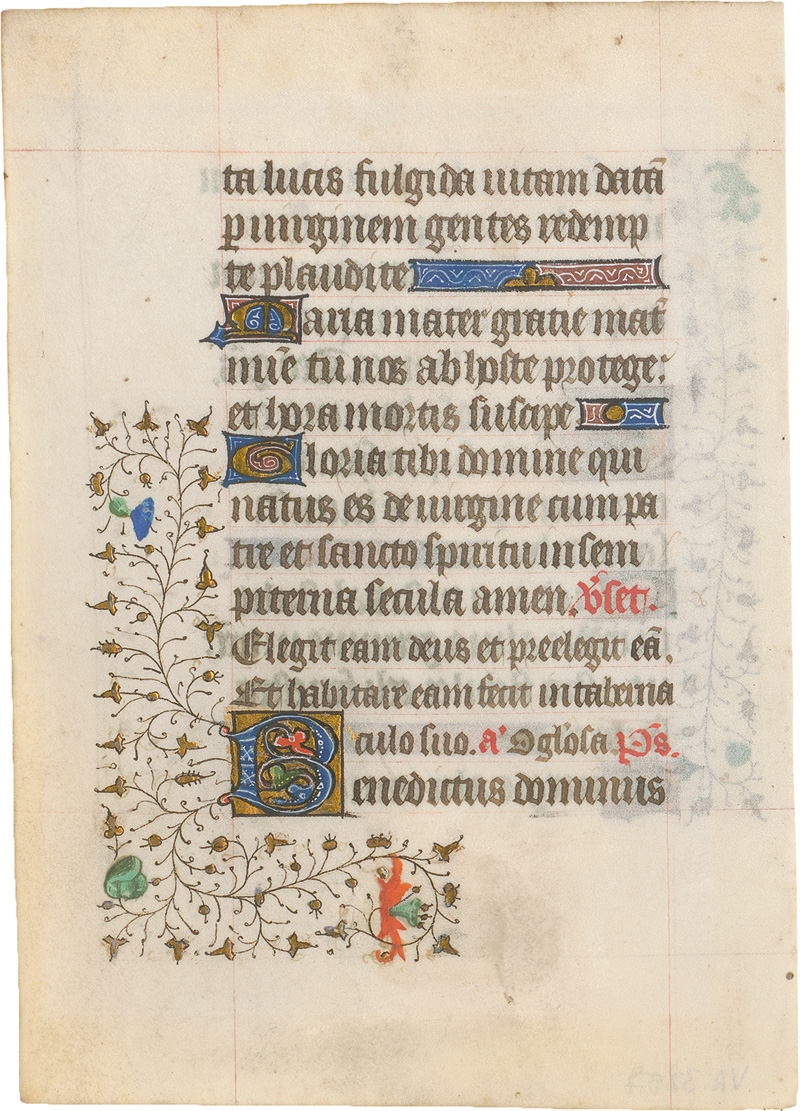 ta lucis fulgida uitam datā
ꝑ uirginem gentes redemp
te plaudite
Maria mater gratie mat̄
mīe tu nos ab hoste protege.
et hora mortis suscipe
Gloria tibi domine qui
natus es de uirgine cum pa
tre et sancto spiritu in sem
piterna secula amen. V̄set.
Elegit eam deus et preelegit eā.
Et habitare eam fecit in taberna
culo suo. a' O gl'osa Ps̄.
Benedictus dominus